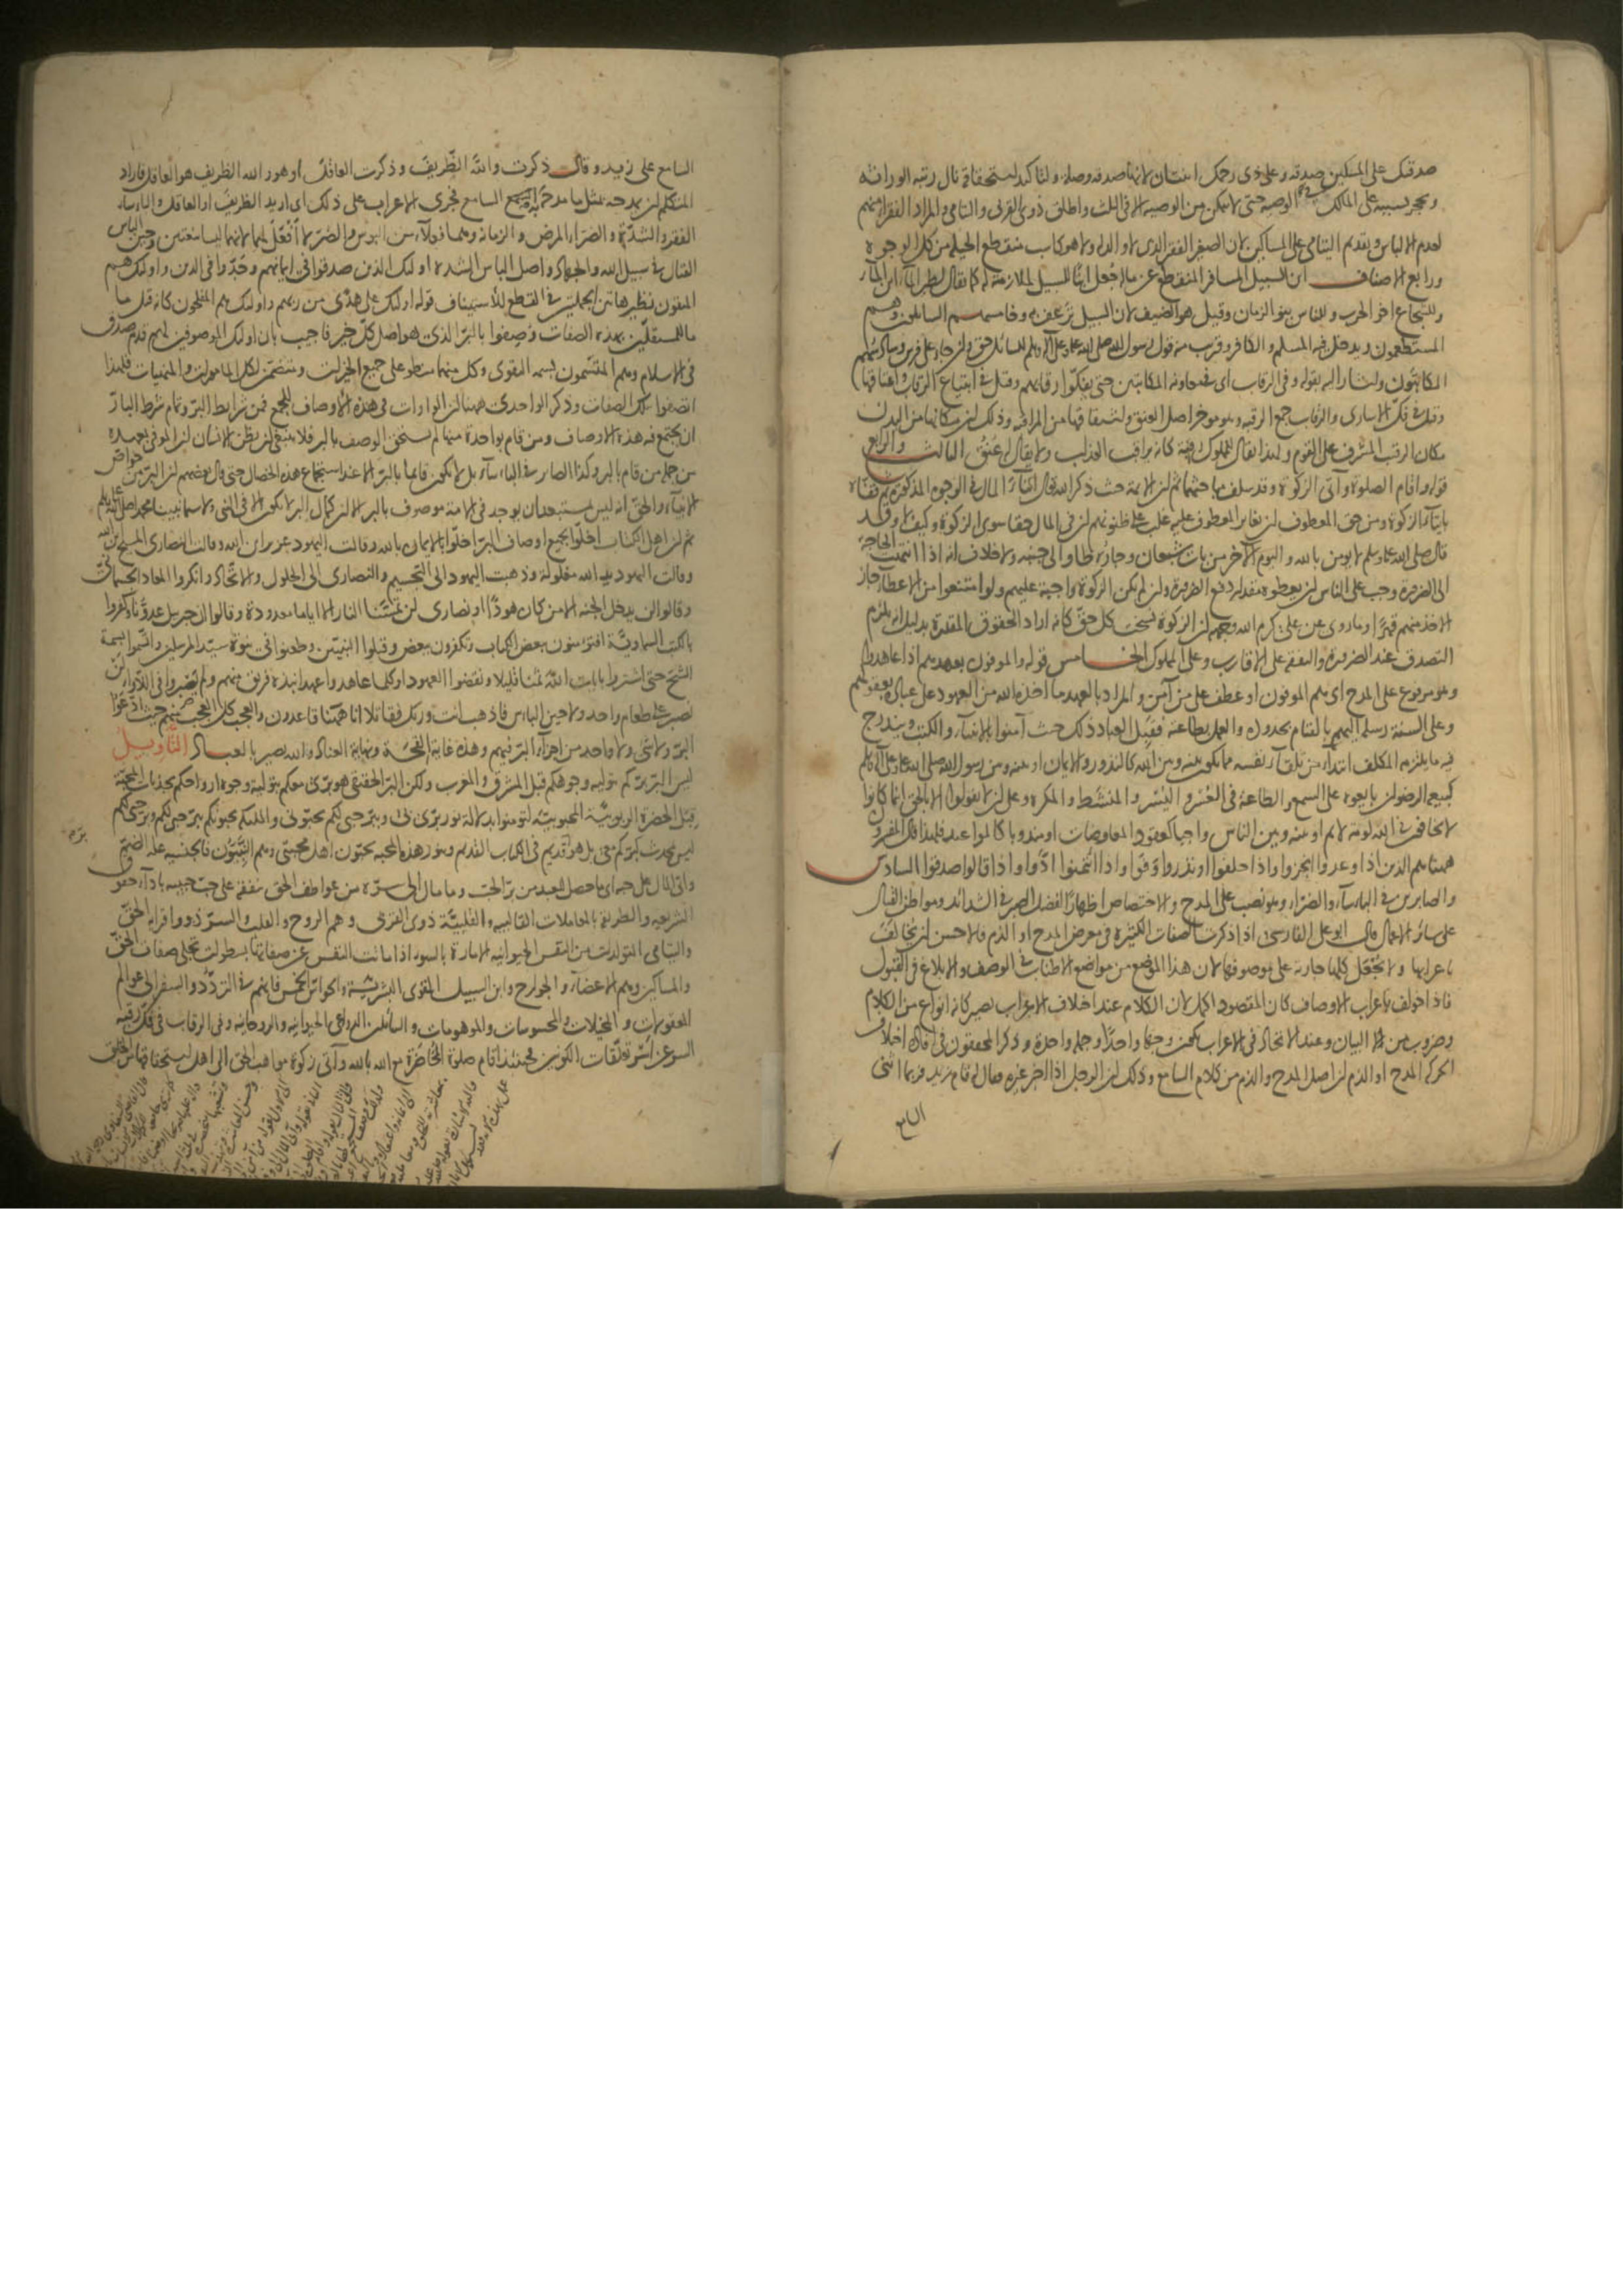 صدقتك على المسكين صدقة وعلى ذي رحمك اثنتان لانها صدقة وصلة ولتاكيد استحقاقه نال رتبة الوراثة
ويحجر بسببه على المالك في الوصية حتى لا يتمكن من الوصية الا في الثلث واطلق ذوي القربى واليتامى والمراد الفقراء منهم
لعدم الالباس وتقديم اليتامى على المساكين لان الصغير الفقير الذي لا والد له ولا هو كاسب منقطع الحيلة من كل الوجوه
ورابع الاصناف ابن السبيل المسافر المنقطع عن ماله جعل ابنا للسبيل لملازمته له كما يقال لطير الماء ابن الماء
وللشجاع اخو الحرب وللناس بنو الزمان وقيل هو الضيف لان السبيل ترعف به وخامسهم السائلون وهم
المستطعمون ويدخل فيه المسلم والكافر وقريب منه قول رسول الله صلى الله عليه وعلى آله وسلم للسائل حق وان جاء على فرس وسادسهم
المكاتبون واشار اليه بقوله وفي الرقاب اي في معاونة المكاتبين حتى يفكوا رقابهم وقيل في ابتياع الرقاب واعتاقها
وقيل في فك الاسارى والرقاب جمع الرقبة وهو مؤخر اصل العنق واشتقاقها من المراقبة وذلك ان مكانها من البدن
مكان الرقيب المشرف على القوم ولهذا يقال للمملوك رقبة كانه يراقب العذاب ولا يقال له عنق الثالث والرابع
قوله واقام الصلوة وآتى الزكوة وقد سلف مباحثهما ثم ان الائمة حيث ذكر الله تعالى ايتاء المال في الوجوه المذكورة ثم قفاه
بايتاء الزكوة ومن حق المعطوف ان يغاير المعطوف عليه غلب على ظنونهم ان في المال حقا سوى الزكوة وكيف لا وقد
قال صلى الله عليه وسلم لا يؤمن بالله واليوم الآخر من بات شبعان وجاره طاو الى جنبه ولا خلاف انه اذا انتهت الحاجة
الى الضرورة وجب على الناس ان يعطوه مقدار دفع الضرورة وان لم يكن الزكوة واجبة عليهم ولو امتنعوا من الاعطاء جاز
الاخذ منهم قهرا وما روي عن علي كرم الله وجهه ان الزكوة نسخت كل حق كانه اراد الحقوق المقدرة بدليل انه يلزم
التصدق عند الضرورة والنفقة على الاقارب وعلى المملوك الخامس قوله والموفون بعهدهم اذا عاهدوا
وهو مرفوع على المدح اي هم الموفون او عطف على من آمن والمراد بالعهد ما اخذه الله من العهود على عباده بقولهم
وعلى السنة رسله اليهم بالقيام بحدوده والعمل بطاعته فقبل العباد ذلك حيث آمنوا بالانبياء والكتب ويندرج
فيه ما يلتزمه المكلف ابتداء من تلقاء نفسه مما يكون بينه وبين الله كالنذور والايمان او بينه وبين رسول الله صلى الله عليه وعلى آله وسلم
كبيعة الرضوان بايعوه على السمع والطاعة في العسر واليسر والمنشط والمكره وعلى ان يقولوا الا بالحق اينما كانوا
لا يخافون في الله لومة لائم او بينه وبين الناس واجبا كعقود المعاوضات او مندوبا كالمواعيد فلهذا قال المفسرون
ههنا هم الذين اذا وعدوا انجزوا واذا حلفوا او نذروا وفوا واذا ائتمنوا ادوا واذا قالوا صدقوا السادس
والصابرين في الباساء والضراء وهو نصب على المدح والاختصاص اظهارا لفضل الصبر في الشدائد ومواطن القتال
على سائر الاعمال قال ابو علي الفارسي اذا ذكرت الصفات الكثيرة في معرض المدح او الذم فالاحسن ان تخالف
باعرابها ولا تجعل كلها جارية على موصوفها لان هذا الموضع من مواضع الاطناب في الوصف والابلاغ في القول
فاذا خولف باعراب الاوصاف كان المقصود اكمل لان الكلام عند اختلاف الاعراب يصير كانه انواع من الكلام
وضروب من البيان وعند الاتحاد في الاعراب يكون وجها واحدا وجملة واحدة وذكر المحققون في قال اختلاف
الحركة المدح او الذم ان اصل المدح والذم من كلام السامع وذلك ان الرجل اذا اخبر غيره فقال له قام زيد فربما اثنى
السامع
السامع على زيد وقال ذكرت والله الظريف وذكرت العاقل او هو والله الظريف هو العاقل فاراد
المتكلم ان يمدحه بمثل ما مدحه به السامع فجرى الاعراب على ذلك اي اريد الظريف او العاقل والباساء
الفقر والشدة والضراء المرض والزمانة وهما فعلاء من البؤس والضر لا افعل لهما لانهما ليسا بنعتين وحين الباس
القتال في سبيل الله والجهاد واصل الباس الشدة اولئك الذين صدقوا في ايمانهم وجدوا في الدين واولئك هم
المتقون نظيرها تين الجملتين في القطع للاستيناف قوله اولئك على هدى من ربهم واولئك هم المفلحون كانه قيل ما
للمستقلين بهذه الصفات وصفوا بالبر الذي هو اصل كل خير فاجيب بان اولئك الموصوفين لهم قدم صدق
في الاسلام وهم المتسمون بسمة التقوى وكل منهما منطو على جميع الخيرات ومتضمن لكل المامورات والمنهيات فلهذا
اتصفوا بتلك الصفات وذكر الواحدي ههنا ان الواوات في هذه الاوصاف للجمع فمن شرائط البر وتمام شرط البار
ان يجتمع فيه هذه الاوصاف ومن قام بواحدة منها لم يستحق الوصف بالبر فلا ينبغي ان يظن الانسان ان الموفي بعهده
من جملة من قام بالبر وكذا الصابر في الباساء بل لا يكون قائما بالبر الا عند استجماع هذه الخصال حتى قال بعضهم ان البر من خواص
الانبياء والحق انه ليس بمستبعد ان يوجد في الامة موصوف بالبر الا ان كمال البر لا يكون الا في النبي ولا سيما نبينا محمد صلى الله عليه وسلم
ثم ان اهل الكتاب اخلوا بجميع اوصاف البر اخلوا بالايمان بالله وقالت اليهود عزير ابن الله وقالت النصارى المسيح ابن الله
وقالت اليهود يد الله مغلولة وذهبت اليهود الى التجسيم والنصارى الى الحلول والاتحاد وانكروا المعاد الجسماني
وقالوا لن يدخل الجنة الا من كان هودا او نصارى لن تمسنا النار الا اياما معدودة وقالوا ان جبريل عدونا وكفروا
بالكتب السماوية افتؤمنون ببعض الكتاب وتكفرون ببعض وقتلوا النبيين وطعنوا في نبوة سيد المرسلين واتسموا بسمة
الشح حتى اشتروا بايات الله ثمنا قليلا ونقضوا العهود اوكلما عاهدوا عهدا نبذه فريق منهم ولم يصبروا في اللأواء لن
نصبر على طعام واحد ولا حين الباس فاذهب انت وربك فقاتلا انا ههنا قاعدون والعجب كل العجب منهم حيث ادعوا
البر ولا شيء ولا واحد من اجزاء البر فيهم وهذه غاية القحة ونهاية العناد والله بصير بالعباد التأويل
ليس البر بركم بتولية وجوهكم قبل المشرق والمغرب ولكن البر الحقيقي هو بري معكم بتولية وجوه ارواحكم بجذبات المحبة
قبل الحضرة الربوبية المحبوبية لتؤمنوا بدلالة نور بري لي وببر حبي لكم تحبوني والملئكة يحبونكم ببر حبي لكم وبر حبي لكم
ليس بمحدث كبركم معي بل هو قديم في الكتاب القديم وبنور هذه المحبة يحبون اهل محبتي وهم النبيون فالجنسية علة الضم
واتى المال على حبه اي ما حصل للعبد من بر الحق وما مال الى سره من عواطف الحق ينفقه على حب حبيبه باداء حقوق
الشريعة والطريقة بالمعاملات القالبية والقلبية ذوي القربى وهم الروح والقلب والسر ذوو قرابة الحق
واليتامى المتولدات من النفس الحيوانية الامارة بالسوء اذا ماتت النفس عن صفاتها بسطوات تجلي صفات الحق
والمساكين وهم الاعضاء والجوارح وابن السبيل القوى البشرية والحواس الخمس فانهم في التردد والسفر الى عوالم
المعقولات والمخيلات والمحسوسات والموهومات والسائلين الدواعي الحيوانية والروحانية وفي الرقاب في فك رقبة
السر عن اسر تعلقات الكونين فحينئذ اقام صلوة المحاضرة مع الله بالله وآتى زكوة مواهب الحق الى اهل استحقاقها من الخلق